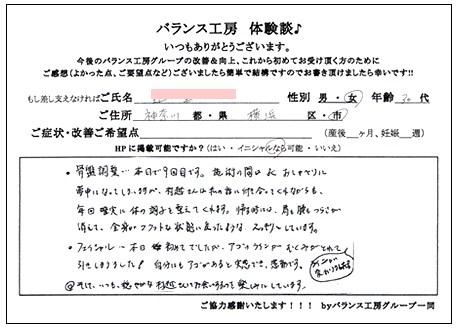 バランス工房 体験談♪
いつもありがとうございます。
今後のバランス工房グループの改善&向上、これから初めてお受け頂く方のために
ご感想(よかった点、ご要望点など)ございましたら簡単で結構ですのでお書き頂けましたら幸いです!!
もし差し支えなければご氏名 性別 男・女 年齢 30 代
ご住所 神奈川 都・県 横浜 区・市
ご症状・改善ご希望点 (産後__ヶ月、妊娠__週)
HPに掲載可能ですか?(はい・イニシャルなら可能・いいえ)
・骨盤調整…本日で9回目です。施術の間は よくおしゃべりに
夢中になってしまいますが、 さんは私の話に付き合ってくれながらも、
毎回確実に体の調子を整えてくれます。帰る時には、肩も腰もつらさが
消して、全身がフラットな状態に戻ったような、スッキリしています。
・フェイシャル…本日 初めてでしたが、アゴのラインが むくみがとれて
引きしまりました! 自分にもアゴがあると実感でき、感動です。
ラインが
変わりました
そして、いつも、穏やかな に会えるのを楽しみにしています。
ご協力感謝いたします!!! byバランス工房グループ一同